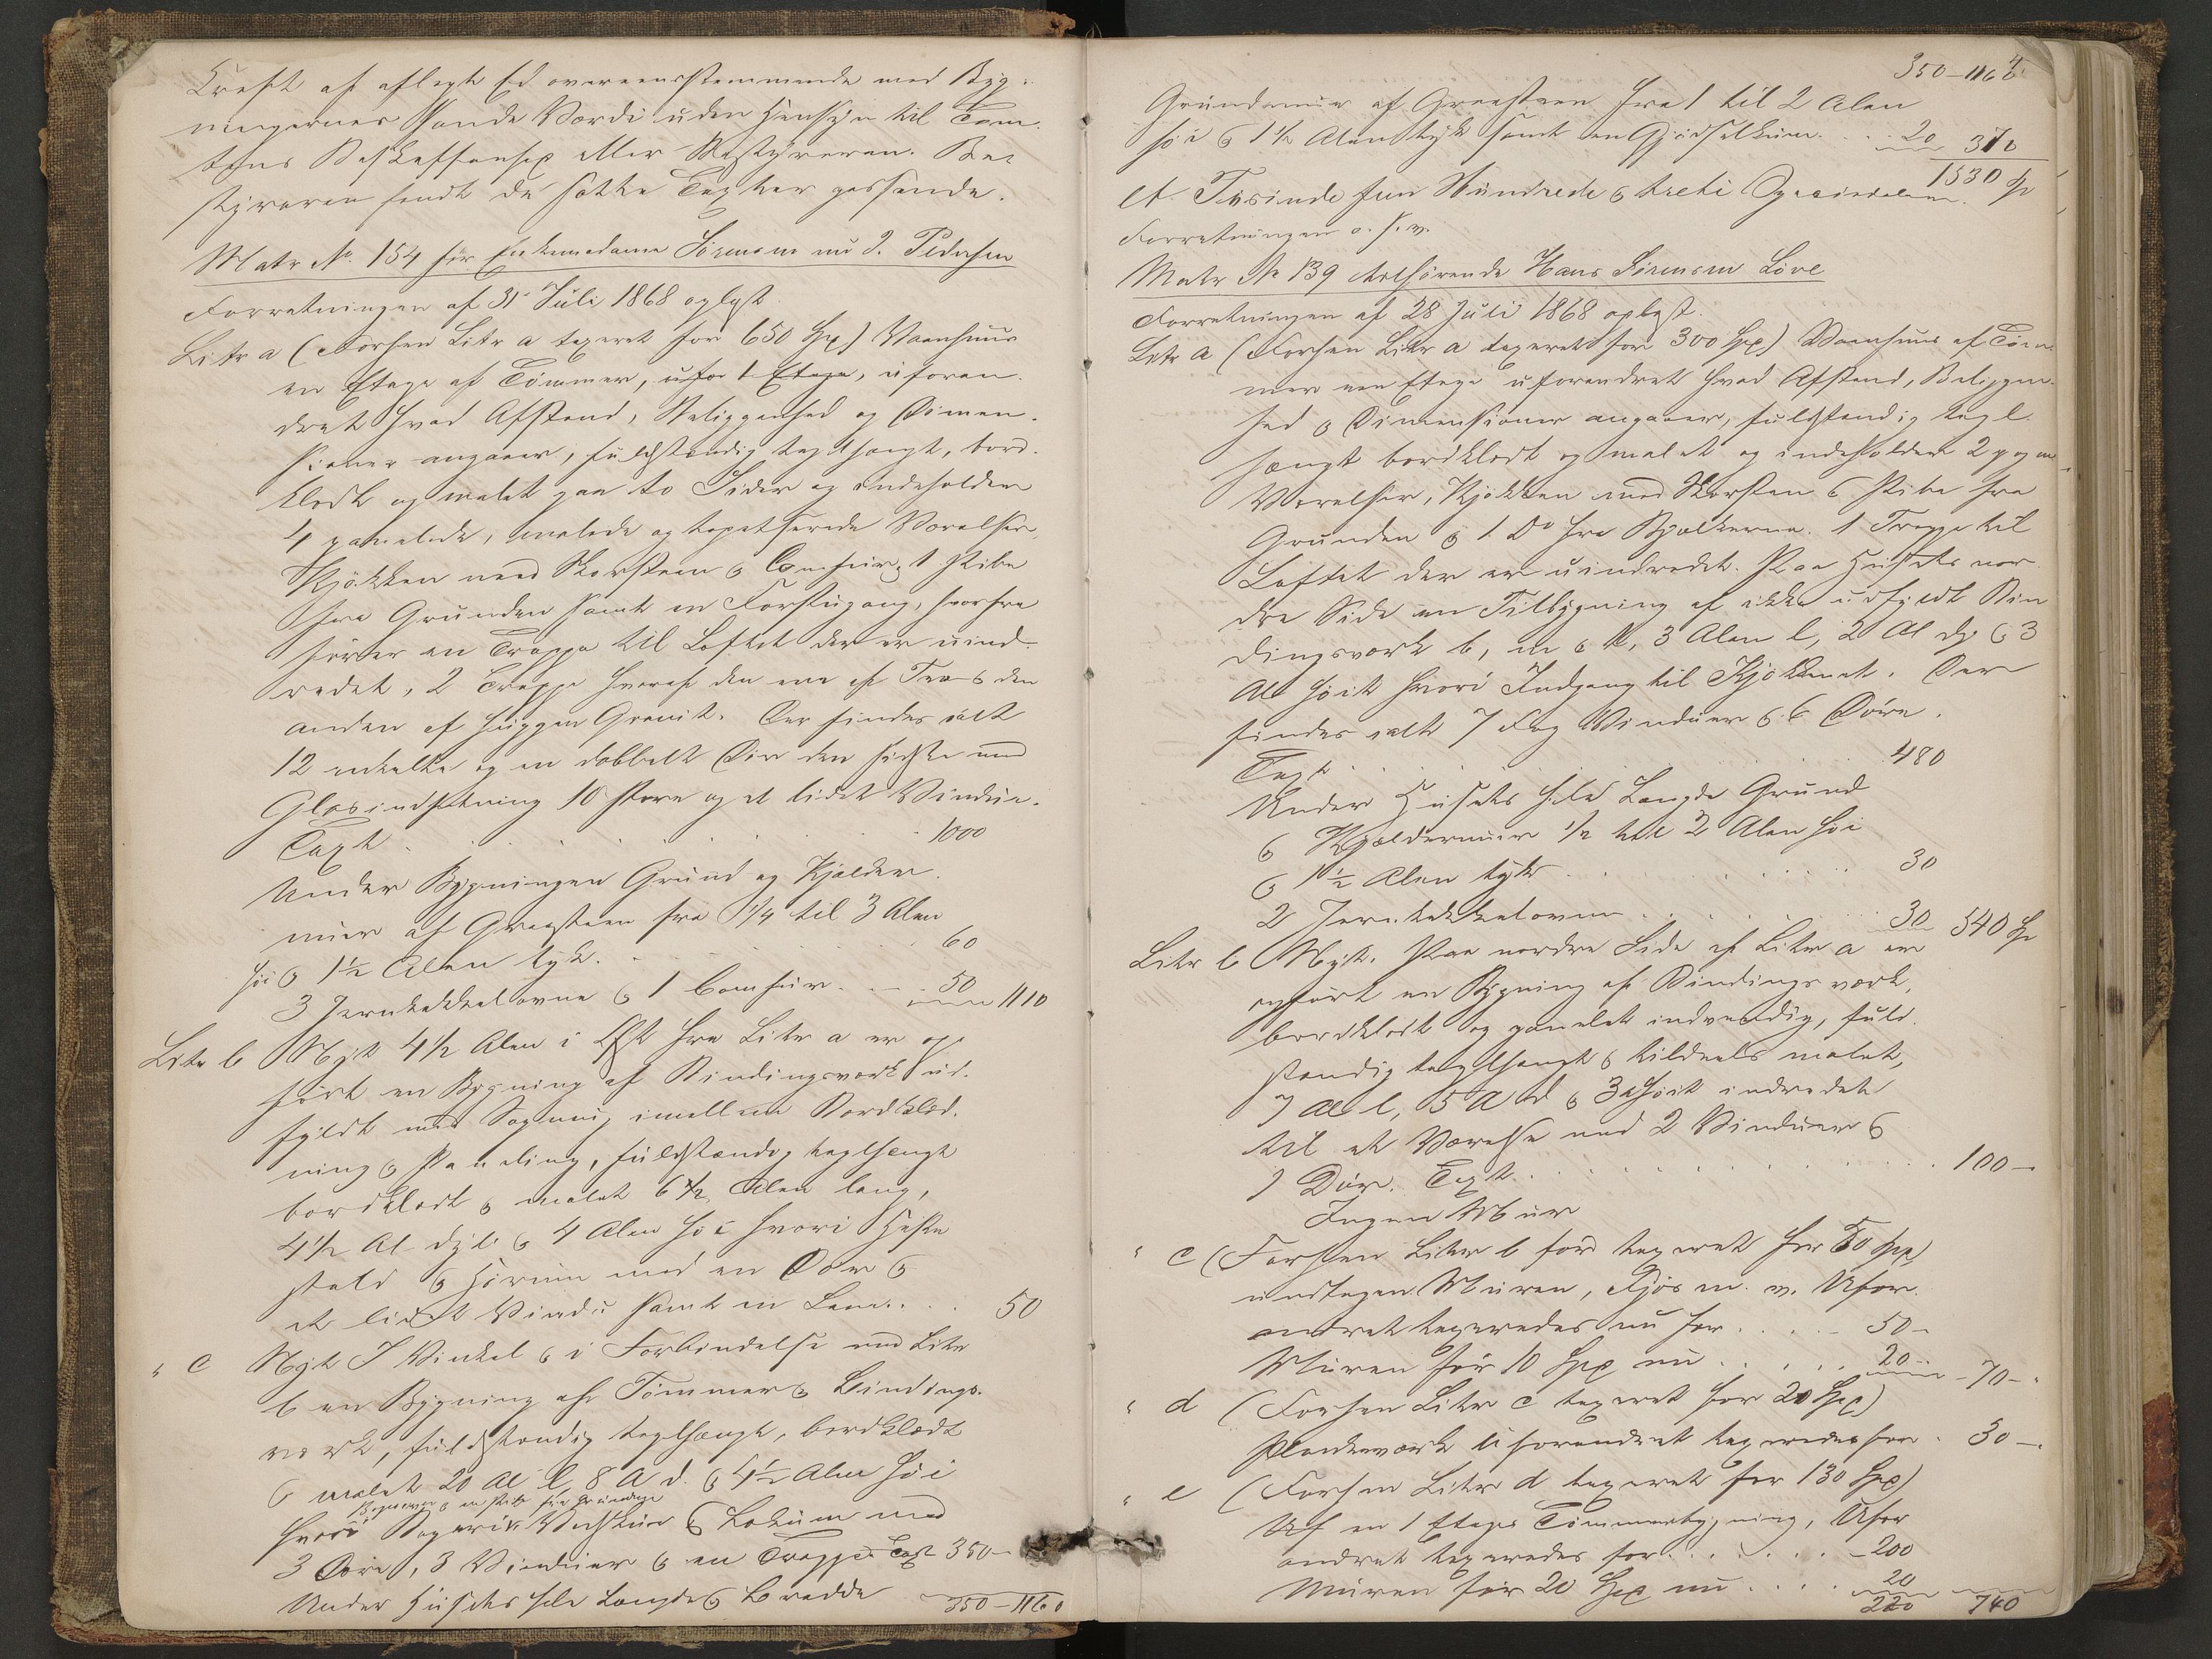 Kraft af aflagte Ed overeensstemmende med Byg-
ningernes sande Værdi uden Hensyn til Tom-
tens Beskaffenhed eller Bestyreren. Be-
styreren fandt de satte Taxter passende.
Matr No. 154 før Enkemadame Sörensen nu J. Pedersen
Forretningen af 31 Juli 1868 oplæst
Litr a (Forhen Litr a taxeret for 650 Spd) Vaanhuus
en Etage af Tömmer, ufor 1 Etage, uforan-
dret hvad Afstand, Beliggenhed og Dimen-
sioner angaaer, fuldstændig teglhængt, bord-
klædt og malet paa to Sider og indeholder
4 panelede, malede og tapetserede Værelser,
Kjökken med Skorsteen & Comfur, 1 Pibe
fra Grunden samt en Forstugang, hvorfra
förer en Trappe til Loftet der er uind-
redet, 2 Trappe hvoraf den ene af Træ & den
anden af huggen Granit. Der findes ialt
12 enkelte og en dobbelt Dör den sidste med
Glasindsætning 10 store og et lidet Vindue.
Taxt . . . . . . 1000
Under Bygningen Grund og Kjelder-
muur af Graasteen fra 1/4 til 3 Alen
höi & 1 1/2 Alen tyk. . . . . 60
3 Jernkakkelovne & 1 Comfur . . 50 1110
Litr b Nyt 4 1/2 Alen i Öst fra Litr a er op-
fört en Bygning af Bindingsværk ud-
fyldt med imellem Bordklæd-
ning & Paneling, fuldstændig teglhængt
bordklædt & malet 6 1/2 Alen lang,
4 1/2 Al dyb & 4 Alen höi hvori Heste
stald & Hörum med en Dör &
et lidet Vindu samt en Lem. . . 50
" c Nyt I Vinkel & i Forbindelse med Litr
b en Bygning af Tömmer & Bindings-
værk, fuldstændig teglhængt, bordklædt
& malet 20 Al l, 8 A d. & 4 1/2 Alen höi
Bagerovn & en Pibe fra Grunden
hvori Bageri, Vedskur & Lokum med
3 Döre, 3 Vinduer & en Trappe Taxt 350 —
Under Husets hele Længde & Bredde 350 — 1160
350 — 1160
Grundmuur af Graasteen fra 1 til 2 Alen
höi & 1 1/2 Alen tyk samt en Gjödselkum . . 20 370
1530 Sp
et Tusinde fem Hundrede & treti Speciedaler.
Forretningen o. s. v.
Matr No 139 tilhörende Hans Sörensen Löve
Forretningen af 28 Juli 1868 oplæst.
Litr a (Forhen Litr a taxeret for 300 Spd) Vaanhuus af Töm-
mer een Etage uforandret hvad Afstand, Beliggen-
hed & Dimensioner angaaer, fuldstændig tegl-
hængt bordklædt og malet og indeholder 2
Værelser, Kjökken med Skorsten & Pibe fra
Grunden & 1 Do fra Bjælkerne. 1 Trappe til
Loftet der er uindredet. Paa Husets nor-
dre Side en Tilbygning af ikke udfyldt Bin
dingsværk b, m & t, 3 Alen l, 2 Al dyb & 3
Al höit hvori Indgang til Kjökkenet. Der
findes ialt 7 Fag Vinduer & 6 Döre.
Taxt . . . . . . 480
Under Husets hele Længde Grund
& Kjældermuur 1/2 til 2 Alen höi
& 1 1/2 Alen tyk . . . . . 30
2 Jernkakkelovne . . . . 30 540 Sp
Litr b Nyt. Paa nordre Side af Litr a er
opfört en Bygning af Bindingsværk,
bordklædt og panelet indvendig, fuld-
stændig teglhængt & tildeels malet,
7 Al l, 5 A d & 3 A höit indredet
til et Værelse med 2 Vinduer &
1 Dör. Taxt. . . . . . 100 —
Ingen Muur
" c (Forhen Litr b taxeret for 50 Spd)
undtagen Muren, Fjös m. v. Ufor-
andret taxeredes nu for . . . 50 —
Muren för 10 Spd nu . . . . 20 — 70 —
" d (Forhen Litr c taxeret for 20 Spd)
Plankeværk uforandret taxeredes for . 30 —
" e (Forhen Litr d taxeret for 130 Spd)
Af en 1 Etages Tömmerbygning, Ufor
andret taxeredes for . . . . . 200
Muren för 20 Spd nu . . . . 20
220 740